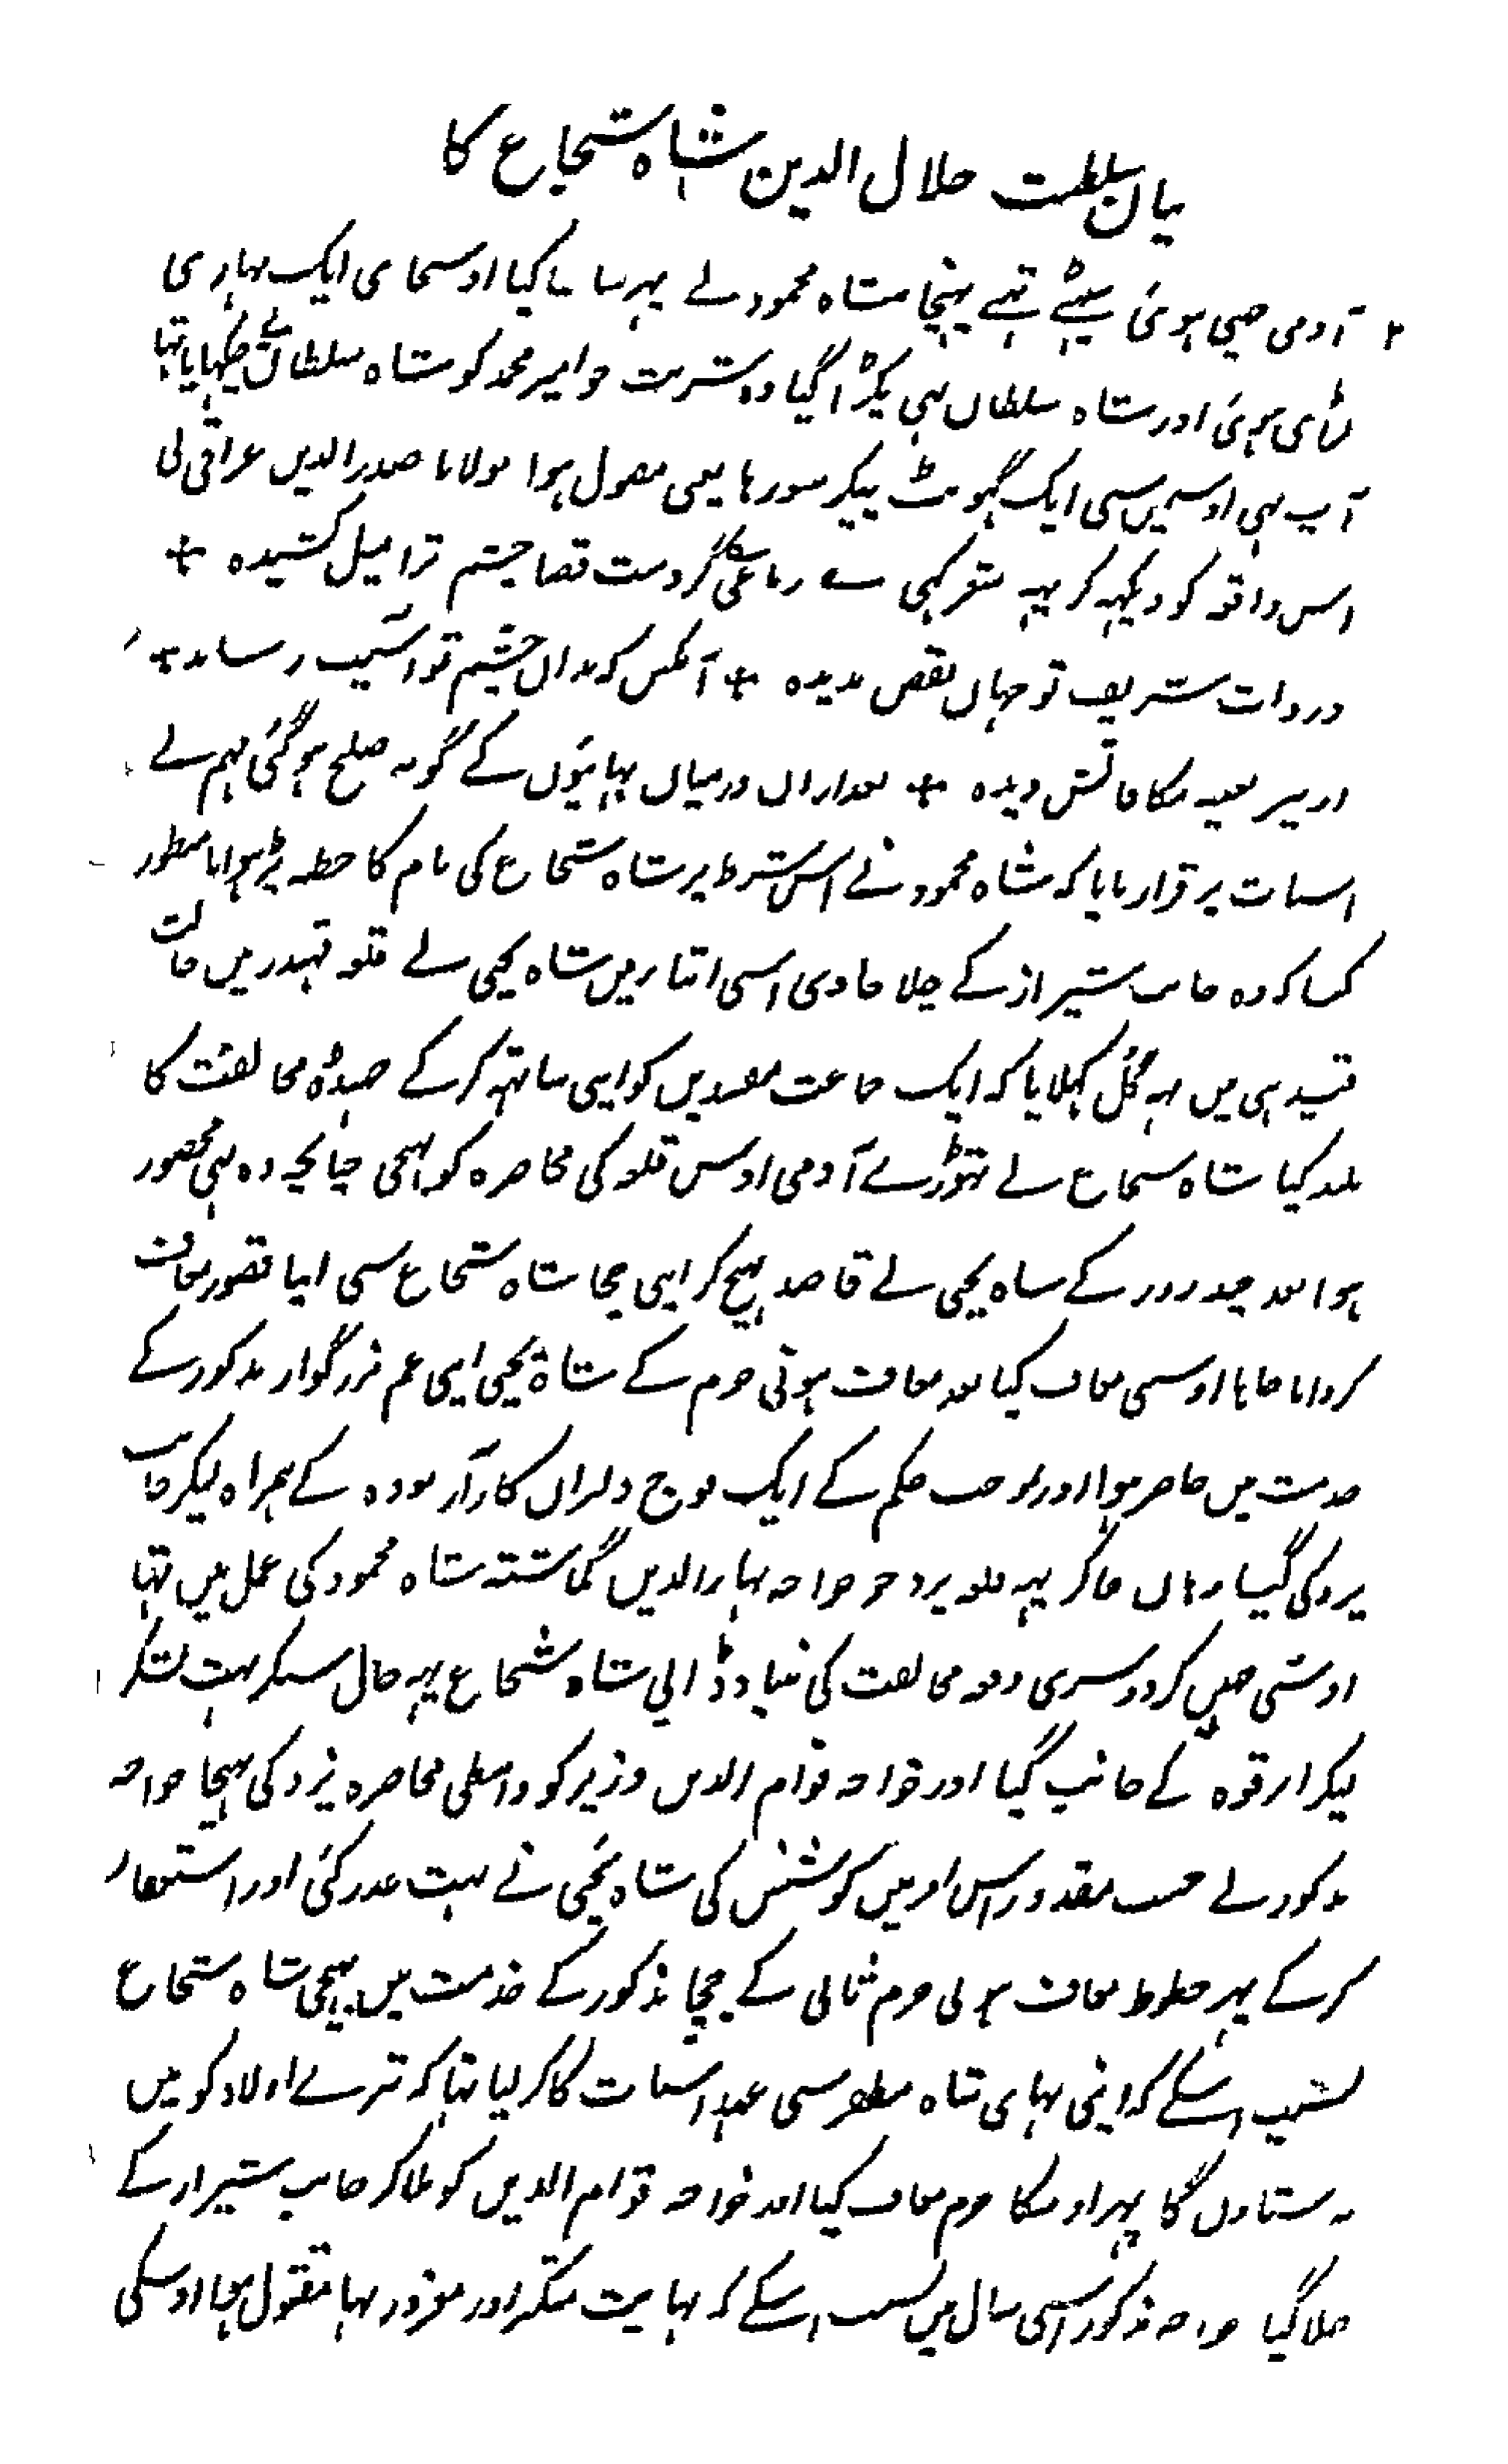 بیان سلطنت جلال الدین شاہ شجاع کا
۲ آدمی چھپی ہوئی بیٹھے تھے پہنچا شاہ محمود نے پہر سامنا کیا اوسجای ایک بہاری
لڑای ہوئی اور شاہ سلطان بہی پکڑا گیا وہ شربت جو امیر محمد کو شاہ سلطان نے چکہایا تہا
آپ بہی اوسمیں سی ایک گہونٹ پیکر سو رہا یعنی مقتول ہوا مولانا صدر الدین عراقی نی
اس واقعہ کو دیکہہ کر یہہ شعر کہی ؎ رباعی گر دست قضا چشم ترا میل کشیدہ +
در ذات شریف تو جہاں نقص ندیدہ + آنکس کہ بدان چشم تو آسیب رسانید +
او نیز بعینہ مکافاتش دیدہ + بعد ازان درمیان بہائیوں کے گونہ صلح ہوگئی مہم نے
اسبات پر قرار پایا کہ شاہ محمود نے اس شرط پر شاہ شجاع کی نام کا خطبہ پڑہوانا منظور
کیا کہ وہ جانب شیراز کے چلا جاوی اسی اثنا میں شاہ یحیی نے قلعہ قہندر میں حالت
قید ہی میں یہہ گل کہلایا کہ ایک جماعت مفسدین کو اپنی ساتہہ کرکے جہنڈہ مخالفت کا
بلند کیا شاہ شجاع نے تہوڑے آدمی اوس قلعہ کی محاصرہ کو بہیجی چنانچہ وہ بہی محصور
ہوا بعد چند روز کے شاہ یحیی نے قاصد بہیج کر اپنی چچا شاہ شجاع سی اپنا قصور معاف
کروانا چاہا اوسنی معاف کیا بعد معاف ہونی جرم کے شاہ یحیی اپنی عم بزرگوار مذکور کے
خدمت میں حاضر ہوا اور بموجب حکم کے ایک فوج دلیران کار آزمودہ کے ہمراہ لیکر جانب
یزد کی گیا وہاں جاکر یہہ قلعہ یزد جو خواجہ بہاء الدین گماشتہ شاہ محمود کی عمل میں تہا
اوسی چہین کر دوسری دفعہ مخالفت کی بنیاد ڈالی شاہ شجاع یہہ حال سنکر بہت لشکر
لیکر ابرقوہ کے جانب گیا اور خواجہ قوام الدین وزیر کو واسطی محاصرہ یزد کی بہیجا خواجہ
مذکور نے حسب مقدور اس امر میں کوشش کی شاہ یحیی نے بہت عذر کئی اور استغفار
کرکے پہر خطوط معاف ہونی جرم ثانی کے چچا مذکور کے خدمت میں بہیجی شاہ شجاع
بسبب اسکے کہ اپنی بہای شاہ مظفر سی عہد اسبات کا کر لیا تہا کہ تیرے اولاد کو میں
نہ ستاوں گا پہر اوسکا جرم معاف کیا اور خواجہ قوام الدین کو بلاکر جانب شیراز کے
چلا گیا خواجہ مذکور اسی سال میں بسبب اسکے کہ نہایت متکبر اور مغرور تہا مقتول ہوا اوسکی